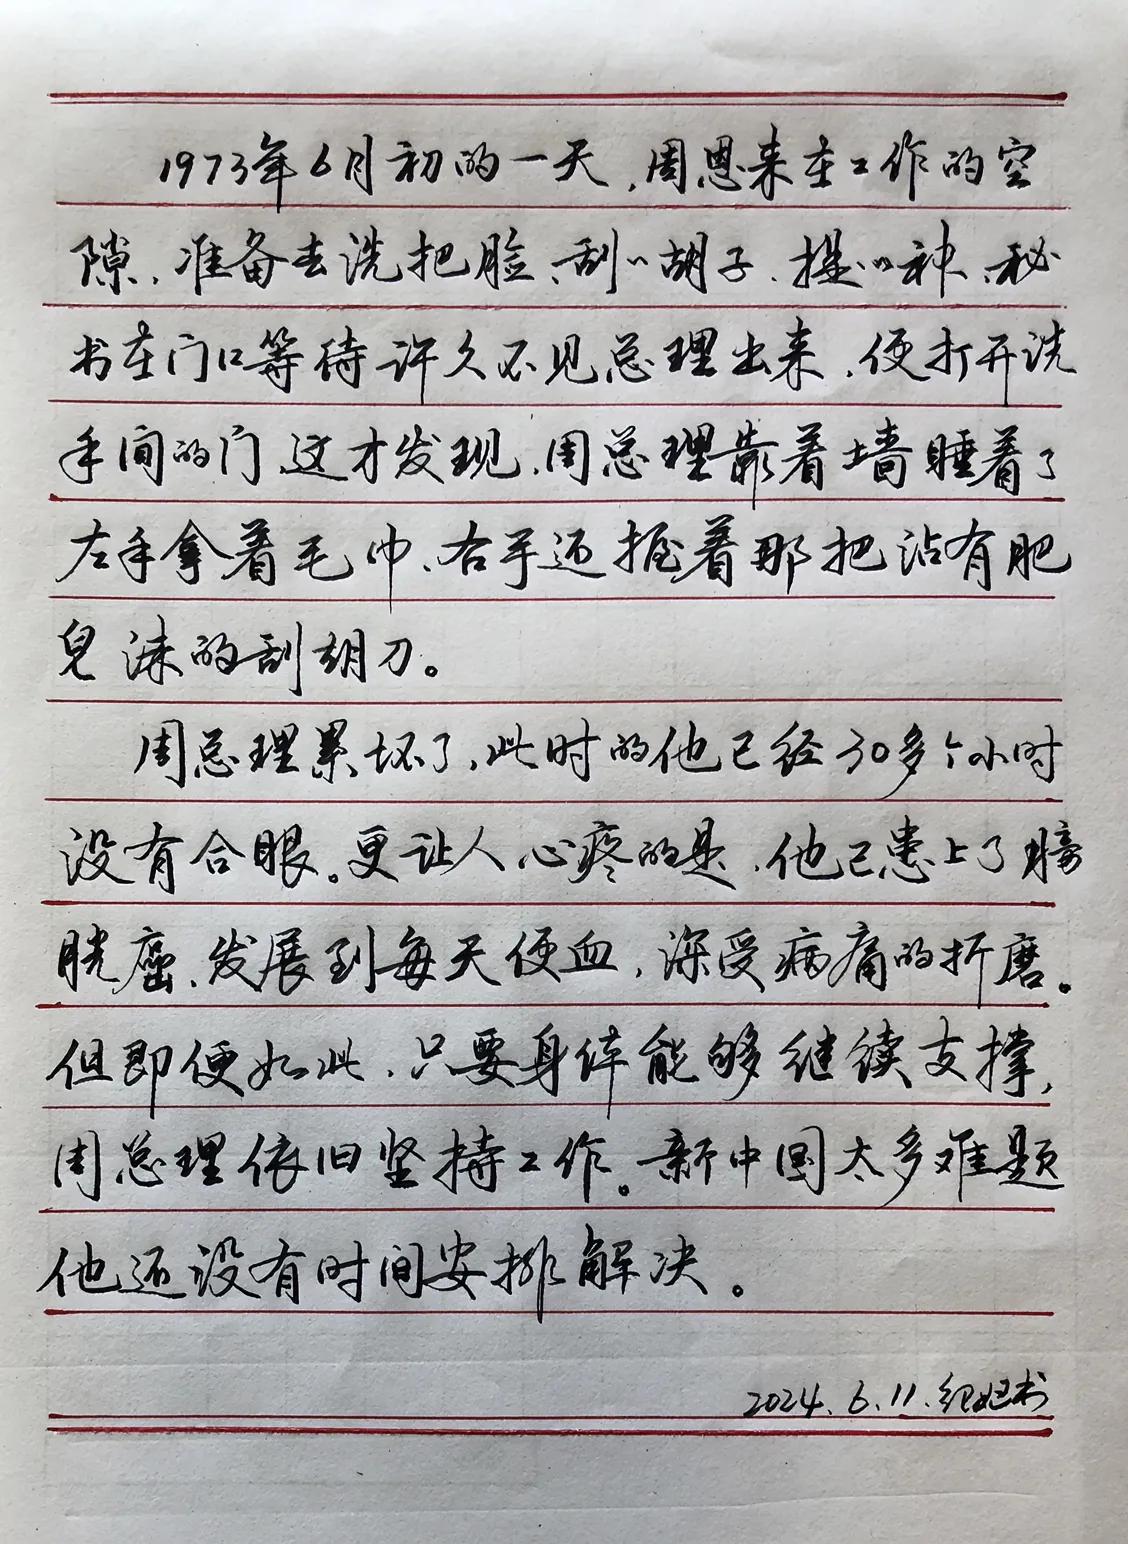 1973年6月初的一天，周恩来在工作的空
隙，准备去洗把脸、刮〃胡子、提〃神、秘
书在门口等待许久不见总理出来，便打开洗
手间的门，这才发现，周总理靠着墙睡着了
左手拿着毛巾、右手还握着那把沾有肥
皂沫的刮胡刀。
周总理累坏了，此时的他已经30多个小时
没有合眼。更让人心疼的是，他已患上了膀
胱癌、发展到每天便血，深受病痛的折磨。
但即便如此，只要身体能够继续支撑，
周总理依旧坚持工作。新中国太多难题
他还没有时间安排解决。
2024.6.11.书